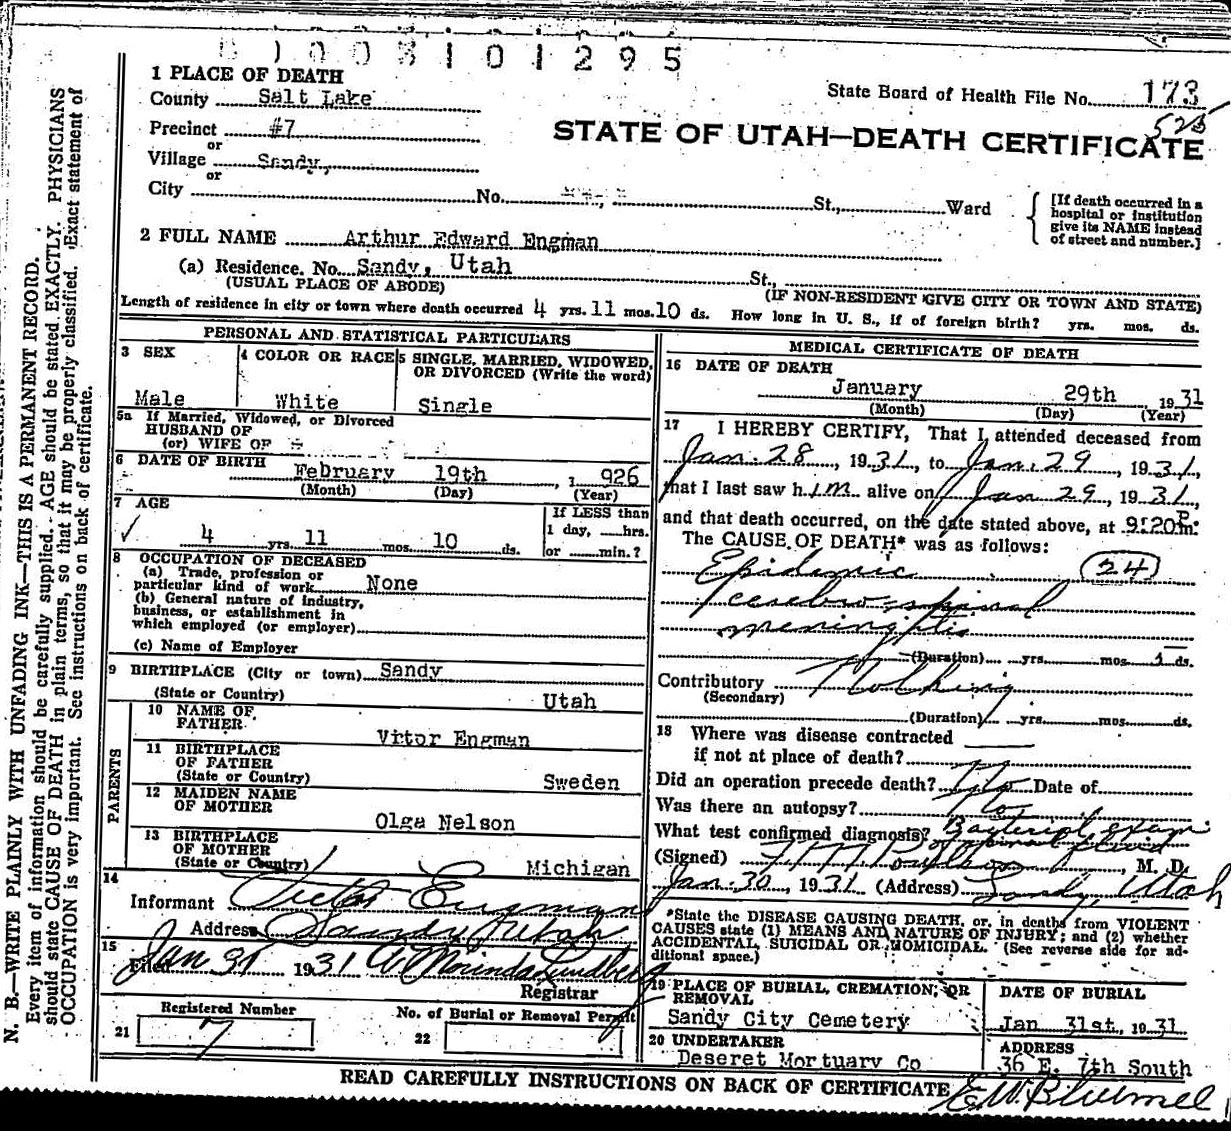 1003101295
1 PLACE OF DEATH
County Salt Lake
Precinct #7
or
Village Sandy,
or
City No. St., Ward
State Board of Health File No. 173
525
STATE OF UTAH—DEATH CERTIFICATE
[If death occurred in a hospital or institution give its NAME instead of street and number.]
2 FULL NAME Arthur Edward Engman
(a) Residence. No. Sandy, Utah St.,
(USUAL PLACE OF ABODE) (IF NON-RESIDENT GIVE CITY OR TOWN AND STATE)
Length of residence in city or town where death occurred 4 yrs. 11 mos. 10 ds. How long in U. S., if of foreign birth? yrs. mos. ds.
PERSONAL AND STATISTICAL PARTICULARS
3 SEX
Male
4 COLOR OR RACE
White
5 SINGLE, MARRIED, WIDOWED, OR DIVORCED (Write the word)
Single
5a If Married, Widowed, or Divorced
HUSBAND OF
(or) WIFE OF
6 DATE OF BIRTH
February 19th, 1926
(Month) (Day) (Year)
7 AGE
4 yrs. 11 mos. 10 ds.
If LESS than
1 day, hrs.
or min.?
8 OCCUPATION OF DECEASED
(a) Trade, profession or
particular kind of work None
(b) General nature of industry,
business, or establishment in
which employed (or employer)
(c) Name of Employer
9 BIRTHPLACE (City or town) Sandy
(State or Country) Utah
PARENTS
10 NAME OF
FATHER Vitor Engman
11 BIRTHPLACE
OF FATHER
(State or Country) Sweden
12 MAIDEN NAME
OF MOTHER Olga Nelson
13 BIRTHPLACE
OF MOTHER
(State or Country) Michigan
14
Informant Victor Engman
Address Sandy Utah
15
Filed Jan 31 1931 Morinda Lundberg
Registrar
Registered Number
21 7
No. of Burial or Removal Permit
22
MEDICAL CERTIFICATE OF DEATH
16 DATE OF DEATH
January 29th, 1931
(Month) (Day) (Year)
17 I HEREBY CERTIFY, That I attended deceased from
Jan. 28, 1931, to Jan. 29, 1931,
that I last saw him alive on Jan 29, 1931,
and that death occurred, on the date stated above, at 9:20 P.m.
The CAUSE OF DEATH* was as follows:
Epidemic 24
cerebro spinal
meningitis
(Duration) yrs. mos. 1 ds.
Contributory Nothing
(Secondary)
(Duration) yrs. mos. ds.
18 Where was disease contracted
if not at place of death?
Did an operation precede death? No Date of
Was there an autopsy? No
What test confirmed diagnosis? Bacteriol. exam
of spinal fluid
(Signed) , M. D.
Jan. 30, 1931 (Address) Sandy, Utah
*State the DISEASE CAUSING DEATH, or, in deaths from VIOLENT
CAUSES state (1) MEANS AND NATURE OF INJURY; and (2) whether
ACCIDENTAL, SUICIDAL OR HOMICIDAL. (See reverse side for ad-
ditional space.)
19 PLACE OF BURIAL, CREMATION, OR
REMOVAL
Sandy City Cemetery
DATE OF BURIAL
Jan 31st, 1931
20 UNDERTAKER
Deseret Mortuary Co
ADDRESS
36 E. 7th South
READ CAREFULLY INSTRUCTIONS ON BACK OF CERTIFICATE
E.W. Blumel
N. B.—WRITE PLAINLY WITH UNFADING INK—THIS IS A PERMANENT RECORD.
Every item of information should be carefully supplied. AGE should be stated EXACTLY. PHYSICIANS
should state CAUSE OF DEATH in plain terms, so that it may be properly classified. Exact statement of
OCCUPATION is very important. See instructions on back of certificate.